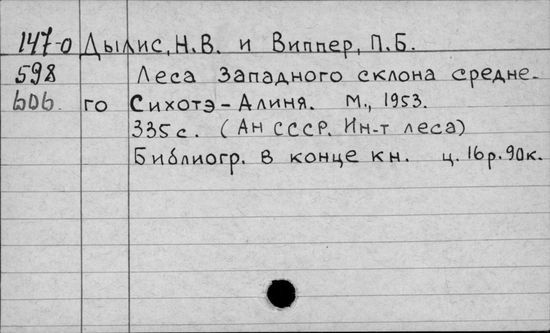 147-о Дылис, Н.В. и Виппер, П.Б.
598 Леса Западного склона средне-
606. го Сихотэ-Алиня. М., 1953.
335 с. (Ан СССР. Ин-т леса)
Библиогр. в конце кн. ц. 16р. 90к.